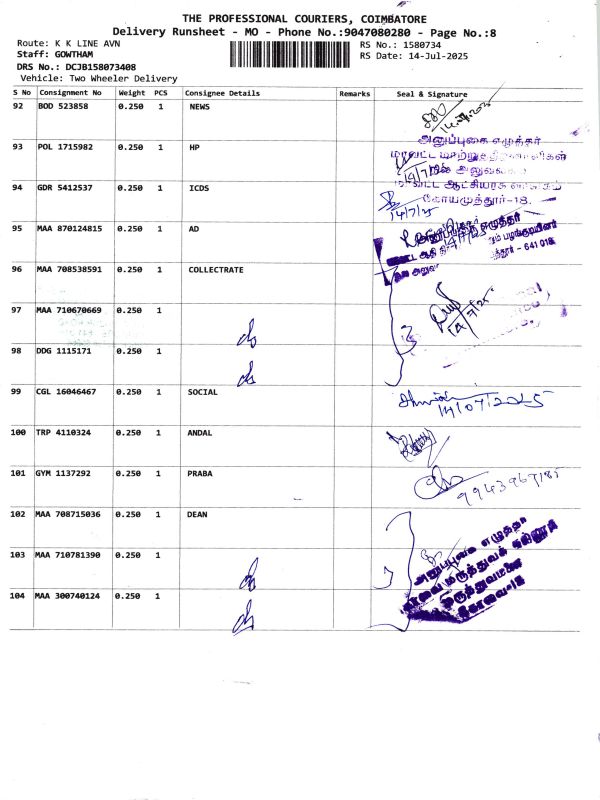 THE PROFESSIONAL COURIERS, COIMBATORE
Delivery Runsheet - MO - Phone No.:9047080280 - Page No.:8
Route: K K LINE AVN
RS No.: 1580734
Staff: GOWTHAM
RS Date: 14-Jul-2025
DRS No.: DCJB158073408
Vehicle: Two Wheeler Delivery
S No Consignment No Weight PCS Consignee Details Remarks Seal & Signature
92 BOD 523858 0.250 1 NEWS
93 POL 1715982 0.250 1 HP
அனுப்புகை எழுத்தர்
94 GDR 5412537 0.250 1 ICDS
கோயமுத்தூர்-18.
14/7/25
95 MAA 870124815 0.250 1 AD
எழுத்தர்
641 018
96 MAA 708538591 0.250 1 COLLECTRATE
97 MAA 710670669 0.250 1
14/7/25
98 DDG 1115171 0.250 1
99 CGL 16046467 0.250 1 SOCIAL
14/07/2025
100 TRP 4110324 0.250 1 ANDAL
101 GYM 1137292 0.250 1 PRABA
9943969185
102 MAA 708715036 0.250 1 DEAN
அனுப்புகை எழுத்தர்
103 MAA 710781390 0.250 1
கோவை மருத்துவக் கல்லூரி
மருத்துவமனை
104 MAA 300740124 0.250 1
கோவை-18